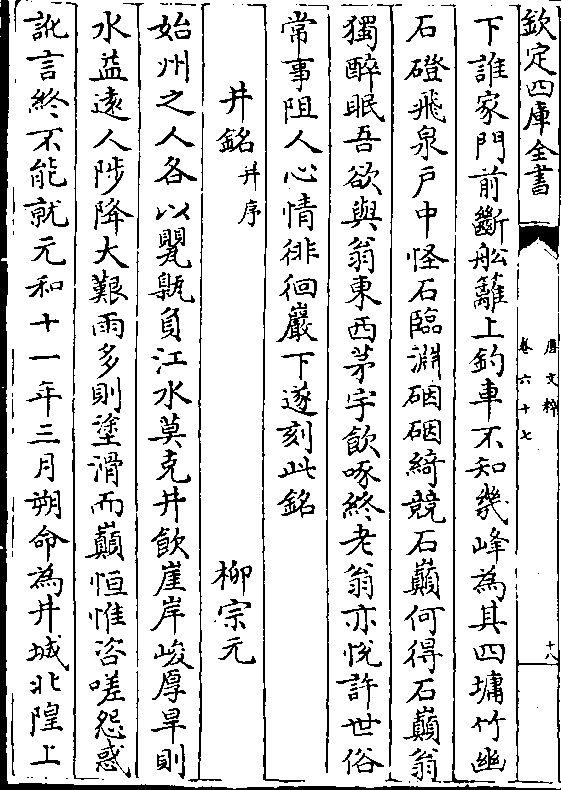 欽定四庫全書
唐文粹
卷六十七
十八
下誰家門前斷船籬上釣車不知幾峰為其四墉竹幽
石磴飛泉戶中怪石臨淵硱硱綺競石巔何得石巔翁
獨醉眠吾欲與翁東西茅宇飲啄終老翁亦悅許世俗
常事阻人心情徘徊巖下遂刻此銘
井銘并序
柳宗元
始州之人各以甖甀負江水莫克井飲崖岸峻厚旱則
水益遠人陟降大艱雨多則塗滑而巔恒惟咨嗟怨惑
訛言終不能就元和十一年三月朔命為井城北隍上